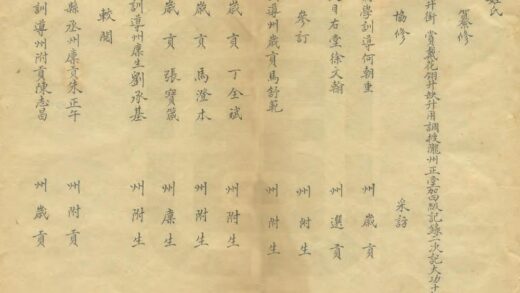 姓氏
纂修
升銜 賞戴花翎升缺升用調授隴州正堂加四級記錄二次記大功十
協修
采訪
學訓導何朝重
州歲貢
目右堂徐文翰
州選貢
參訂
州附生
導州歲貢馬舒範
州附生
歲貢丁全斌
州附生
歲貢馬澄本
州附生
歲貢張寶箴
州廩生
訓導州廩生劉承基
州附生
較閱
縣丞州廩貢朱正午
州附貢
訓導州附貢陳志昌
州歲貢